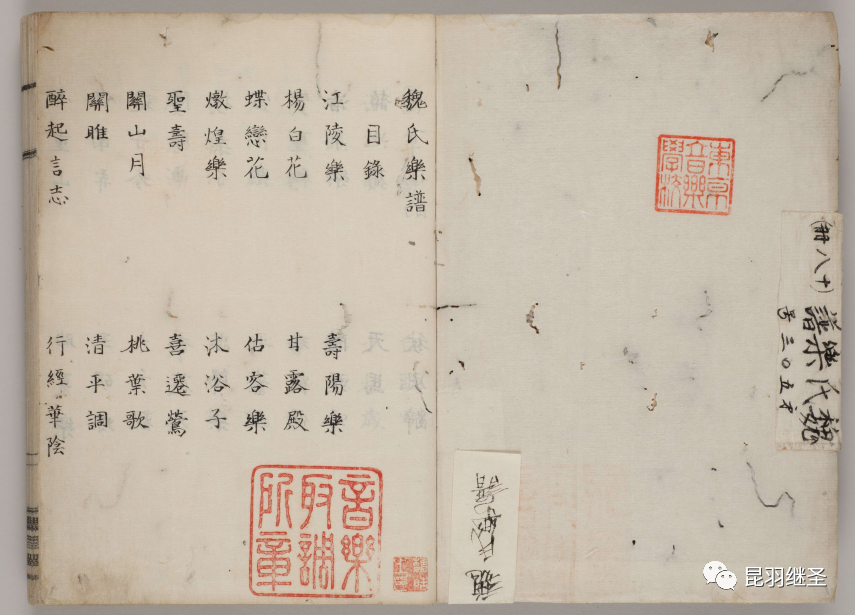 魏氏樂譜
目錄
江陵樂 壽陽樂
楊白花 甘露殿
蝶戀花 估客樂
燉煌樂 沐浴子
聖壽 喜遷鶯
關山月 桃葉歌
關雎 清平調
醉起言志 行經華陰
東京音樂學校
魏氏樂譜
(十八冊)
音樂取調所章
昆羽继圣